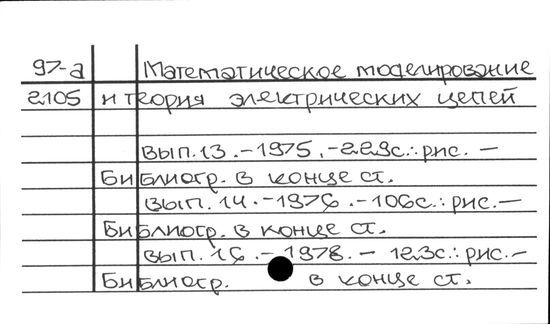 97-а Математическое моделирование
2105 и теория электрических цепей
вып.13.-1975.-229с.:рис.-
Библиогр. в конце ст.
вып.14.-1976.-106с.:рис.-
Библиогр. в конце ст.
вып.16.-1978.-123с.:рис.-
Библиогр. в конце ст.